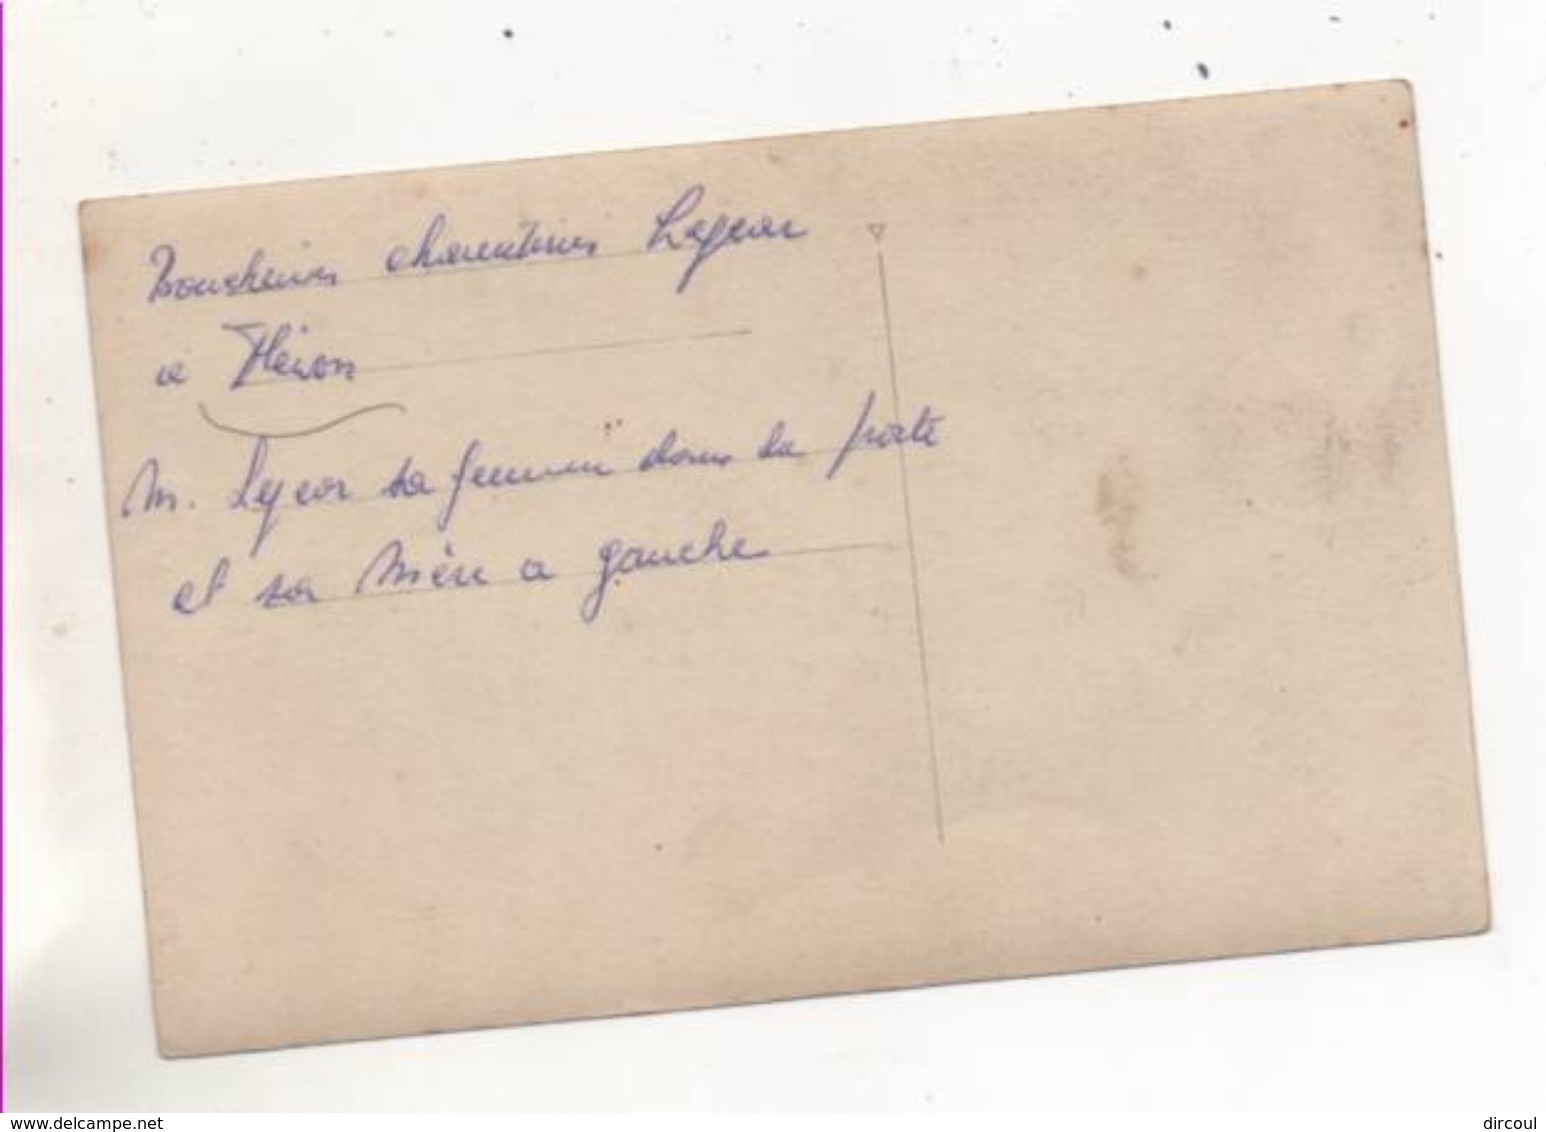 Boucherie charcuterie Lejear
a Héron
M. Lejear sa femme dans la porte
et sa Mère a gauche
www.delcampe.net
dircoul